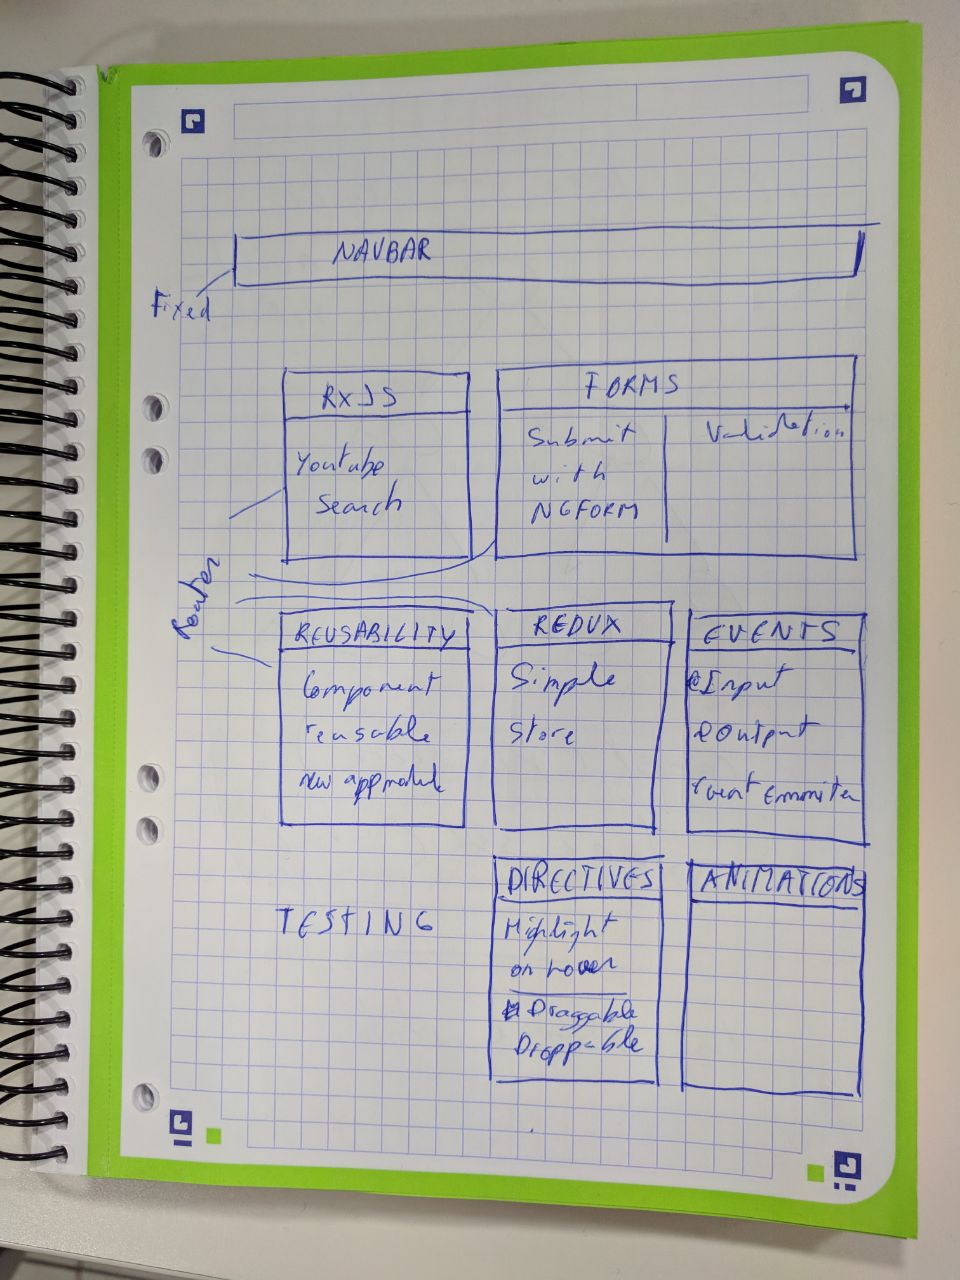 NAVBAR
Fixed
RXJS
Youtube
Search
FORMS
Submit
with
NGFORM
Validation
Router
REUSABILITY
Component
reusable
new app module
REDUX
Simple
Store
EVENTS
@Input
@Output
Event Emmiter
TESTING
DIRECTIVES
Highlight
on hover
Draggable
Droppable
ANIMATIONS